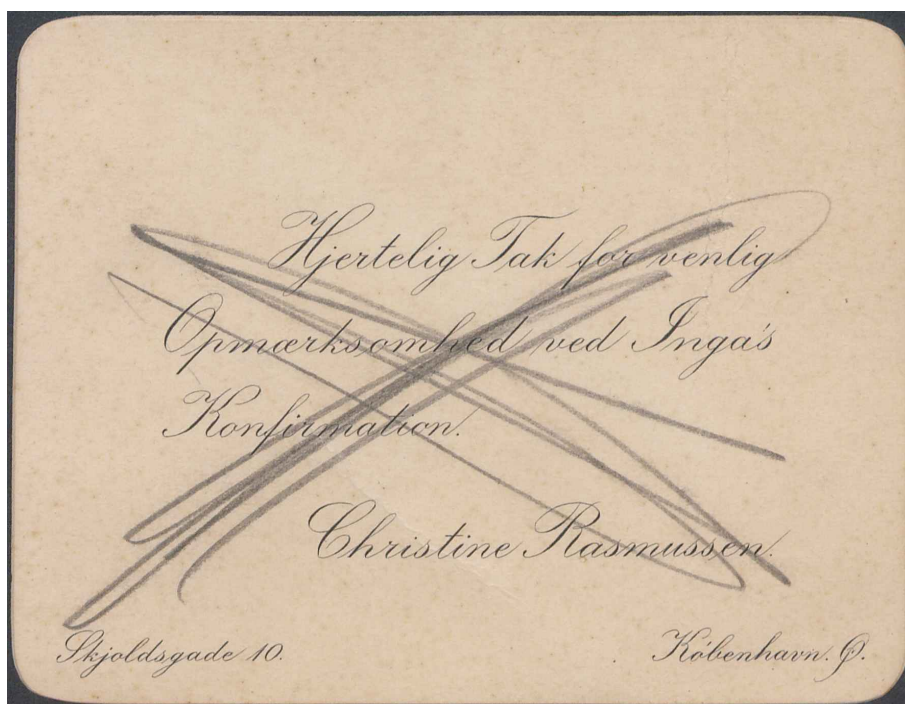 Hjertelig Tak for venlig
Opmærksomhed ved Inga's
Konfirmation.
Christine Rasmussen.
Skjoldsgade 10.
København. Ø.